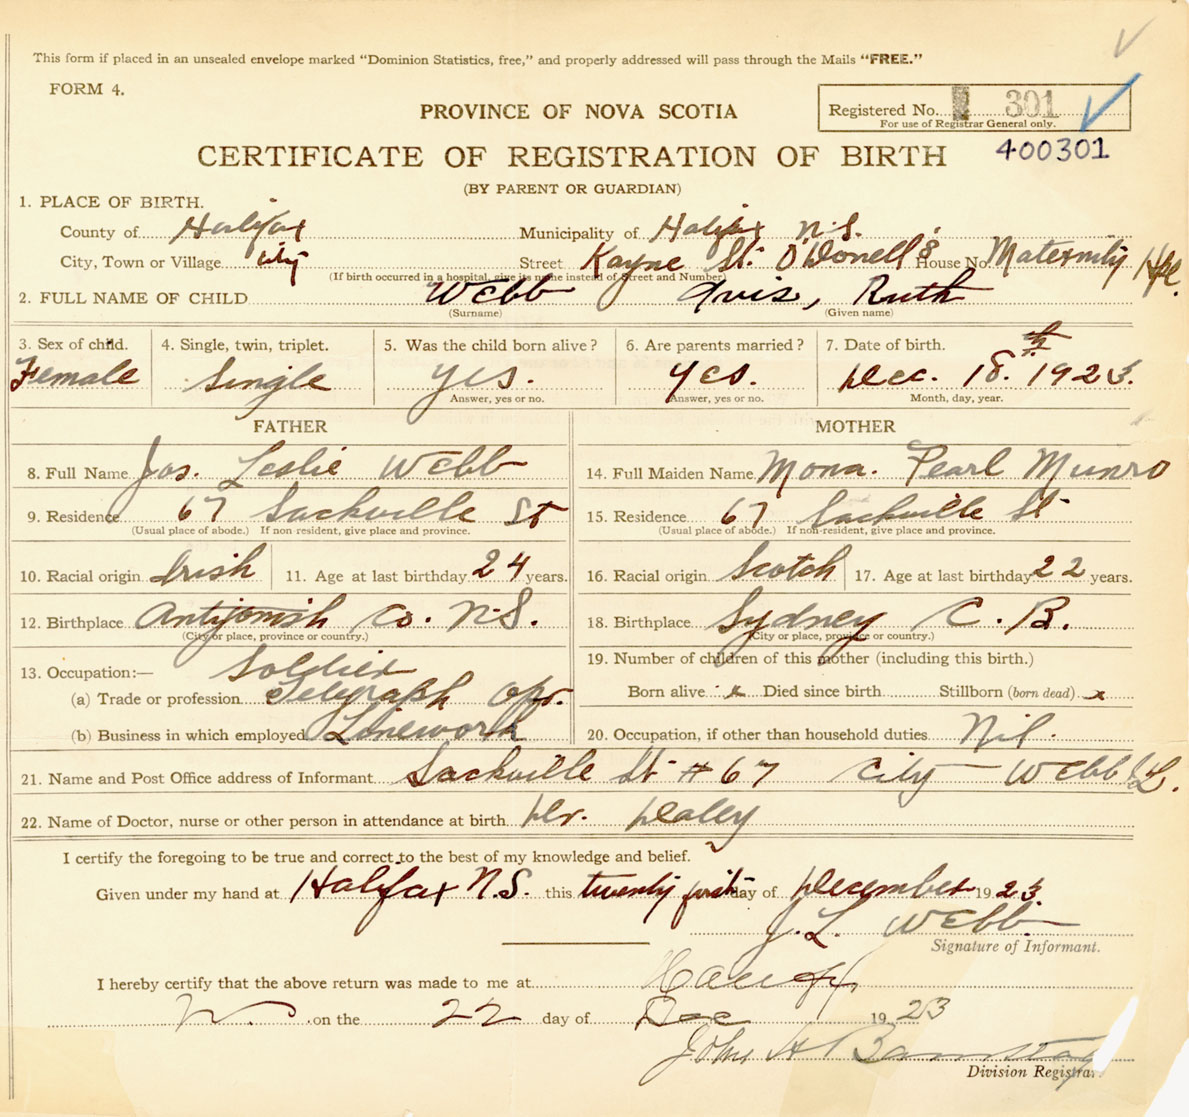 This form if placed in an unsealed envelope marked "Dominion Statistics, free," and properly addressed will pass through the Mails "FREE."
FORM 4.
PROVINCE OF NOVA SCOTIA
Registered No. 301
For use of Registrar General only.
CERTIFICATE OF REGISTRATION OF BIRTH
400301
(BY PARENT OR GUARDIAN)
1. PLACE OF BIRTH.
County of Halifax Municipality of Halifax N.S.
City, Town or Village city Street Kayne St. O'Donell's House No. Maternity Hpl.
(If birth occurred in a hospital, give its name instead of Street and Number)
2. FULL NAME OF CHILD Webb Avis, Ruth
(Surname) (Given name)
3. Sex of child. 4. Single, twin, triplet. 5. Was the child born alive? 6. Are parents married? 7. Date of birth.
Female Single Yes. Yes. Dec. 18th 1923.
Answer, yes or no. Answer, yes or no. Month, day, year.
FATHER MOTHER
8. Full Name Jas. Leslie Webb 14. Full Maiden Name Mona. Pearl Munro
9. Residence 67 Sackville St 15. Residence 67 Sackville St
(Usual place of abode.) If non resident, give place and province. (Usual place of abode.) If non-resident, give place and province.
10. Racial origin Irish 11. Age at last birthday 24 years. 16. Racial origin Scotch 17. Age at last birthday 22 years.
12. Birthplace Antijonish Co. N.S. 18. Birthplace Sydney C. B.
(City or place, province or country.) (City or place, province or country.)
13. Occupation:— Soldier 19. Number of children of this mother (including this birth.)
(a) Trade or profession Telegraph Opr. Born alive x Died since birth Stillborn (born dead) x
(b) Business in which employed Linework 20. Occupation, if other than household duties Nil.
21. Name and Post Office address of Informant Sackville St # 67 City — Webb J L.
22. Name of Doctor, nurse or other person in attendance at birth Dr. Daley
I certify the foregoing to be true and correct to the best of my knowledge and belief.
Given under my hand at Halifax N.S. this twenty first day of December 1923.
J. L. Webb
Signature of Informant.
I hereby certify that the above return was made to me at
on the 22 day of Dec 1923
John A
Division Registrar.